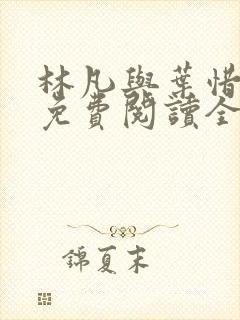 林凡與葉惜
免費閱讀全
錦夏末